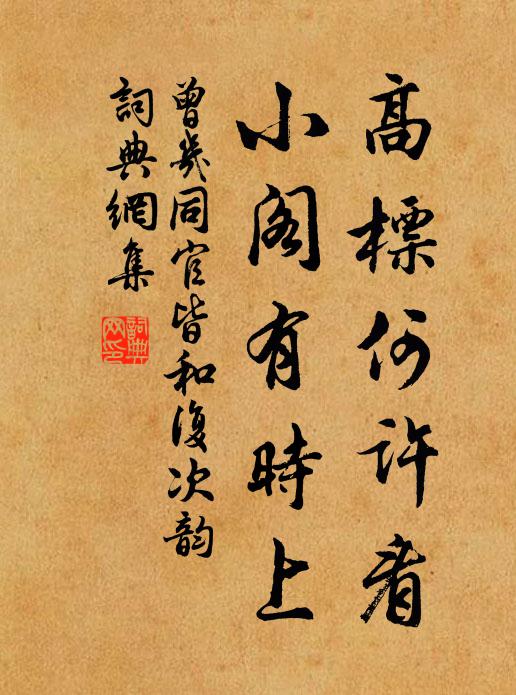 高標何許看
小閣有時上
曾幾同官皆和復次韵
詞典網集
詞典
网印